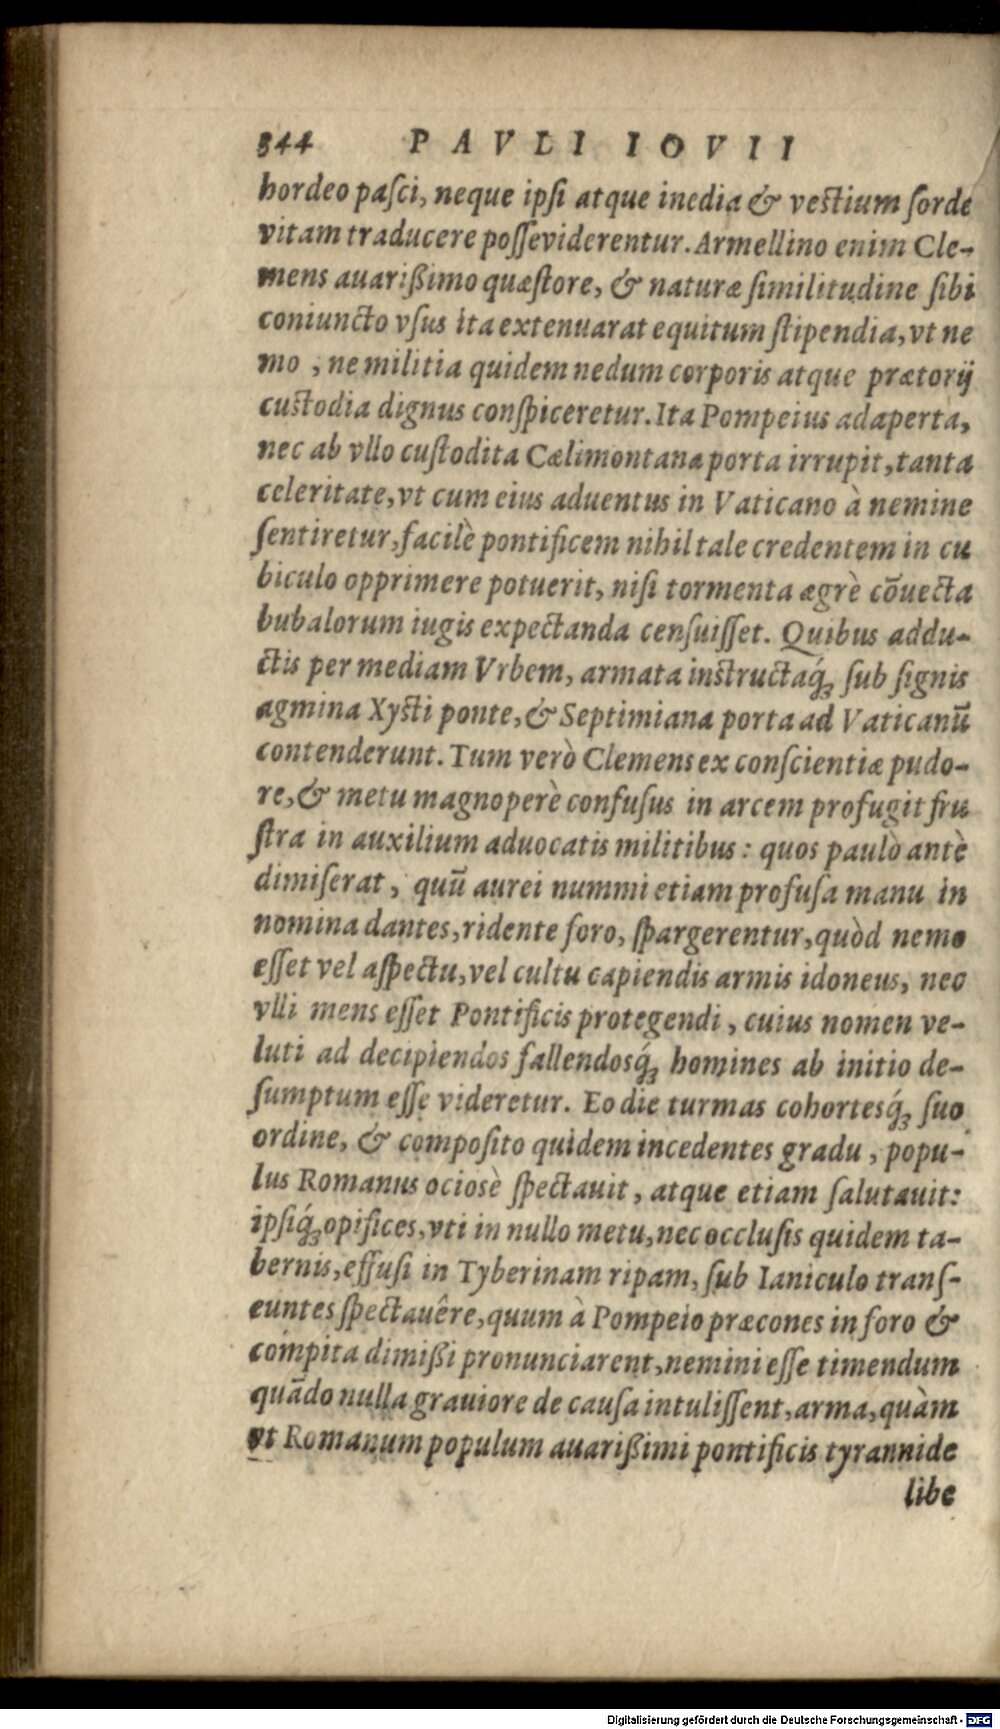 344 PAVLI IOVII
hordeo pasci, neque ipsi atque inedia & vestium sorde
vitam traducere posse viderentur. Armellino enim Cle-
mens auarißimo quæstore, & naturæ similitudine sibi
coniuncto vsus ita extenuarat equitum stipendia, vt ne
mo, ne militia quidem nedum corporis atque prætorij
custodia dignus conspiceretur. Ita Pompeius adaperta,
nec ab vllo custodita Cælimontana porta irrupit, tanta
celeritate, vt cum eius aduentus in Vaticano à nemine
sentiretur, facilè pontificem nihil tale credentem in cu
biculo opprimere potuerit, nisi tormenta ægrè cõuecta
bubalorum iugis expectanda censuisset. Quibus addu-
ctis per mediam Vrbem, armata instructaq́; sub signis
agmina Xysti ponte, & Septimiana porta ad Vaticanũ
contenderunt. Tum verò Clemens ex conscientiæ pudo-
re, & metu magnoperè confusus in arcem profugit fru
stra in auxilium aduocatis militibus: quos paulò antè
dimiserat, quũ aurei nummi etiam profusa manu in
nomina dantes, ridente foro, spargerentur, quòd nemo
esset vel aspectu, vel cultu capiendis armis idoneus, nec
vlli mens esset Pontificis protegendi, cuius nomen ve-
luti ad decipiendos fallendosq́; homines ab initio de-
sumptum esse videretur. Eo die turmas cohortesq́; suo
ordine, & composito quidem incedentes gradu, popu-
lus Romanus ociosè spectauit, atque etiam salutauit:
ipsiq́; opifices, vti in nullo metu, nec occlusis quidem ta-
bernis, effusi in Tyberinam ripam, sub Ianiculo trans-
euntes spectauêre, quum à Pompeio præcones in foro &
compita dimißi pronunciarent, nemini esse timendum
quãdo nulla grauiore de causa intulissent, arma, quàm
vt Romanum populum auarißimi pontificis tyrannide
libe
Digitalisierung gefördert durch die Deutsche Forschungsgemeinschaft - DFG